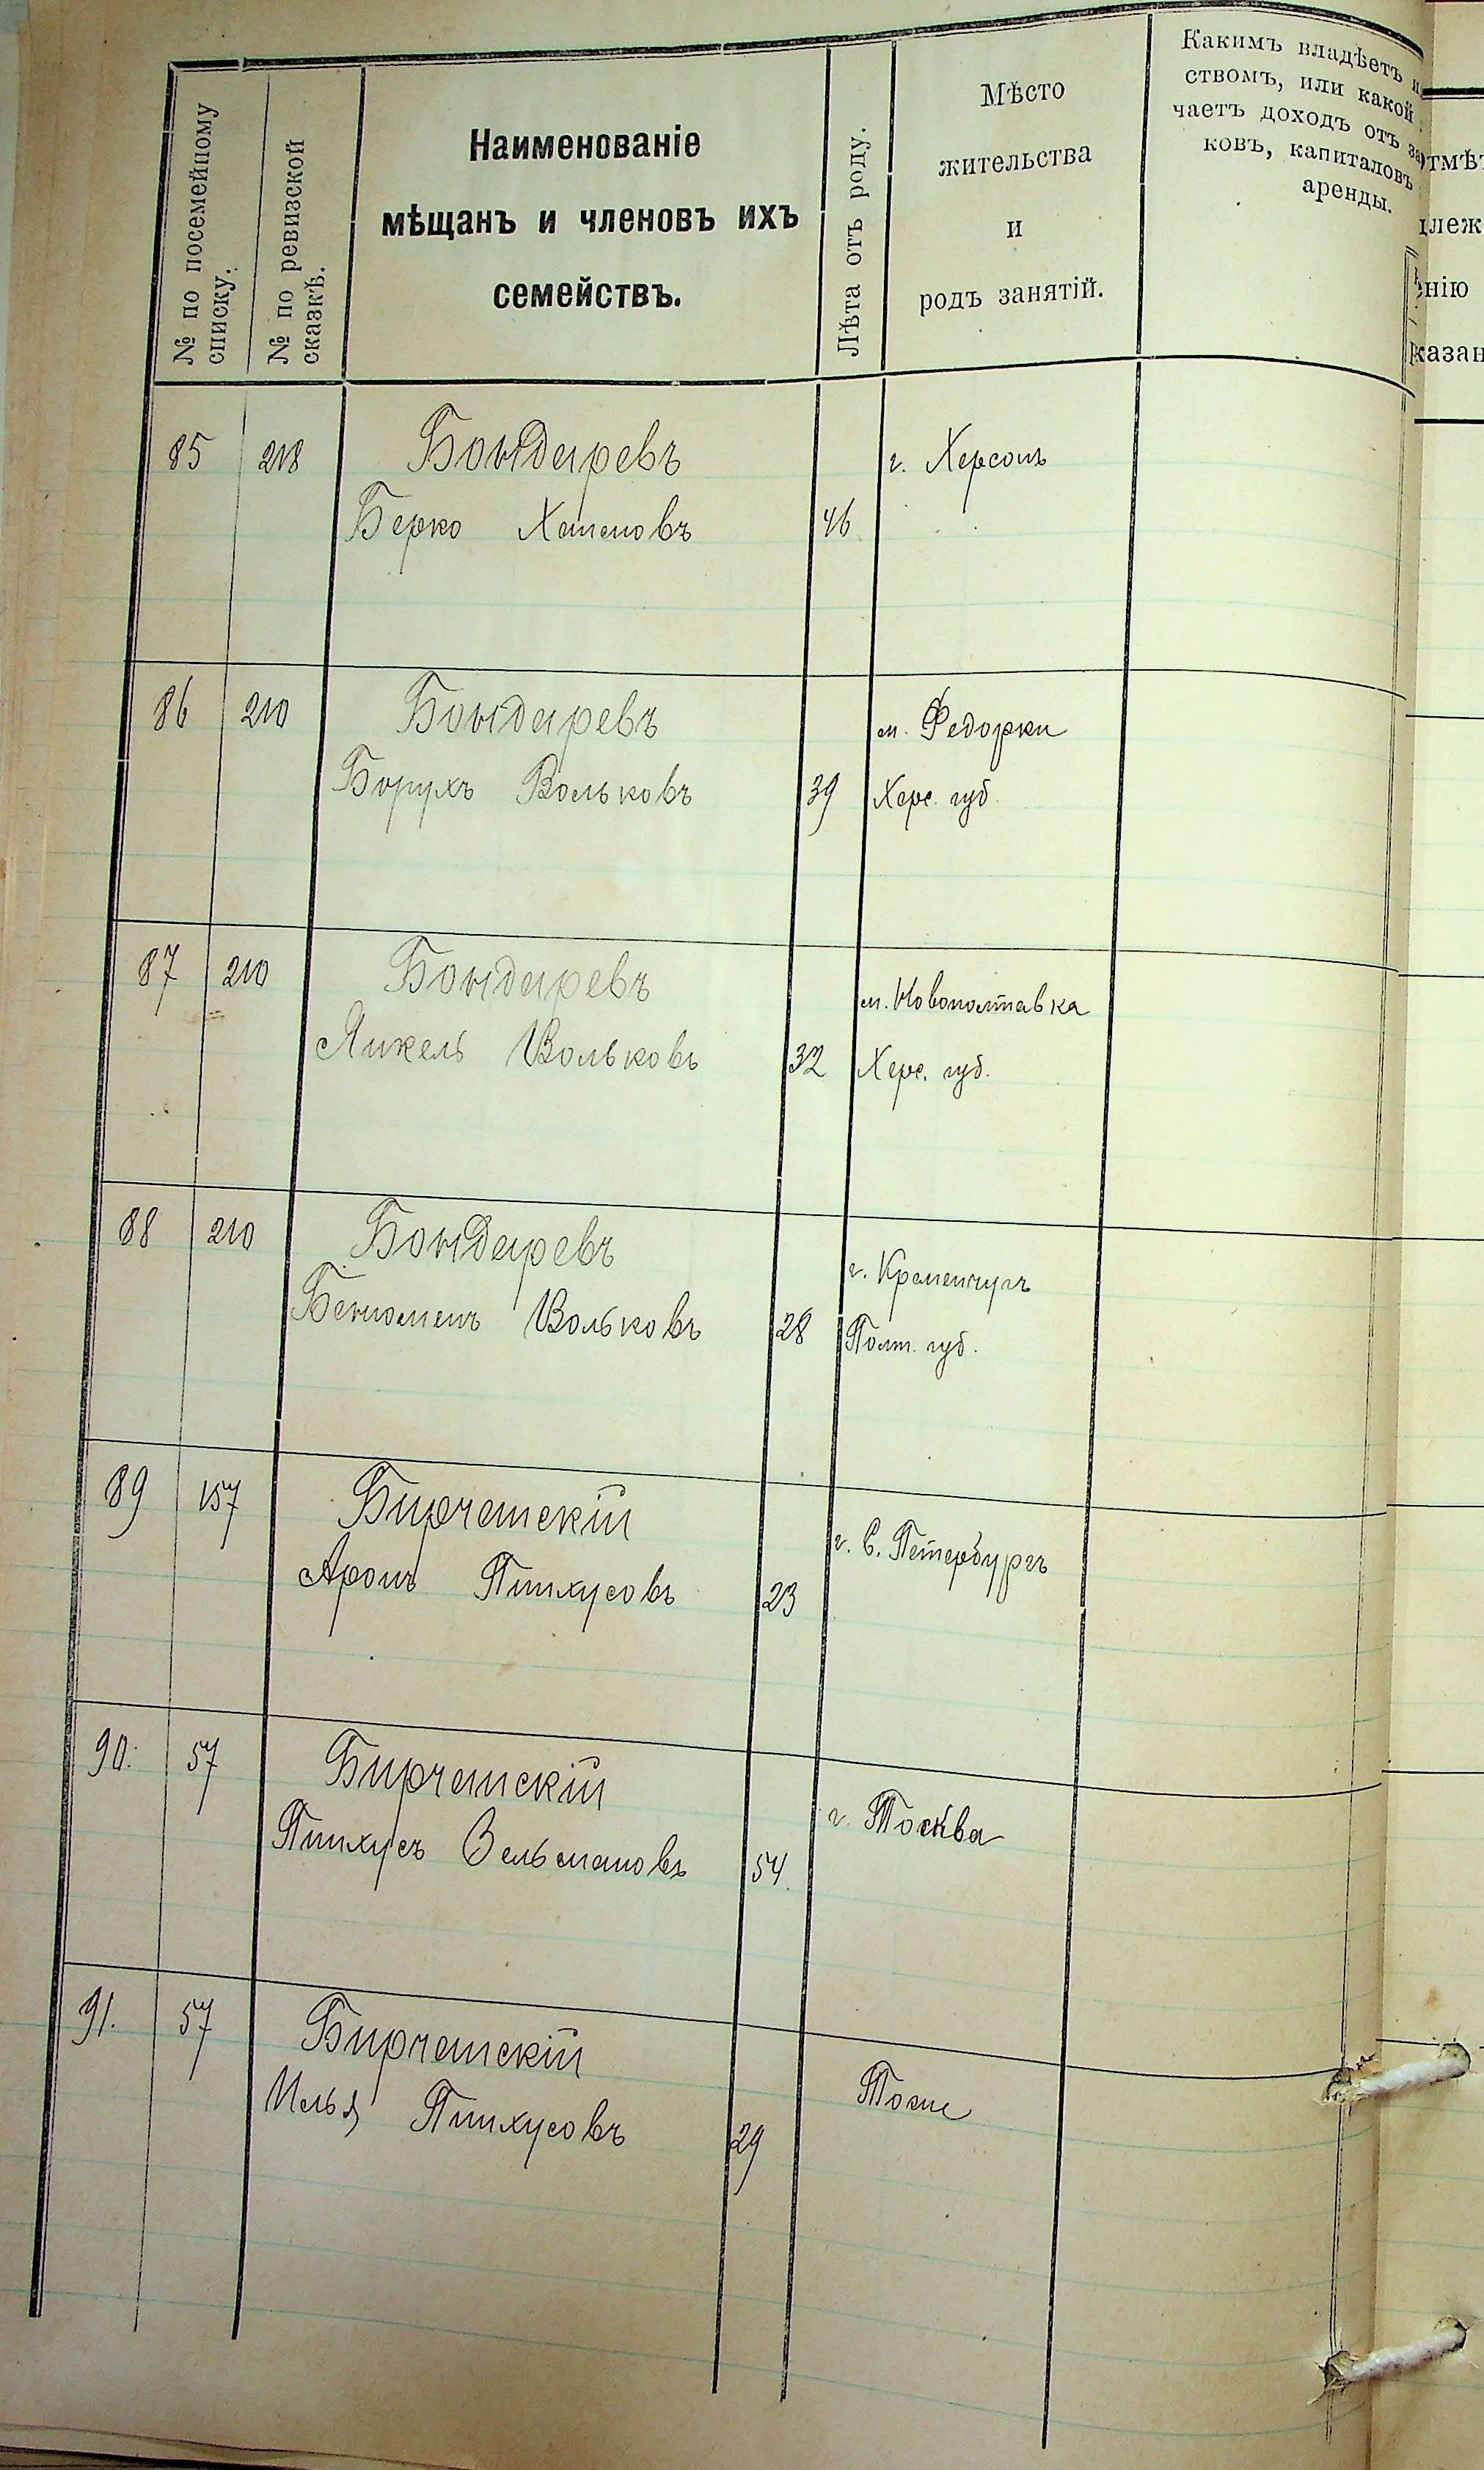 № по посемейному
списку.
№ по ревизской
сказкѣ.
Наименованіе
мѣщанъ и членовъ ихъ
семействъ.
Лѣта отъ роду.
Мѣсто
жительства
и
родъ занятій.
Какимъ владѣетъ и
ствомъ, или какой
чаетъ доходъ отъ за
ковъ, капиталовъ
аренды.
85 218 Бондаревъ г. Херсонъ
Берко 46
86 210 Бондаревъ м. Федорки
Борухъ Вольковъ 39 Херс. губ.
87 210 Бондаревъ м. Новополтавка
Янкель Вольковъ 32 Херс. губ.
88 210 Бондаревъ г. Кременчугъ
Беньоменъ Вольковъ 28 Полт. губ.
89 157 Бирченскій г. С. Петербургъ
Аронъ Пинхусовъ 23
90. 57 Бирченскій г. Москва
Пинхусъ Зельмановъ 54.
91. 57 Бирченскій
Илья Пинхусовъ 29